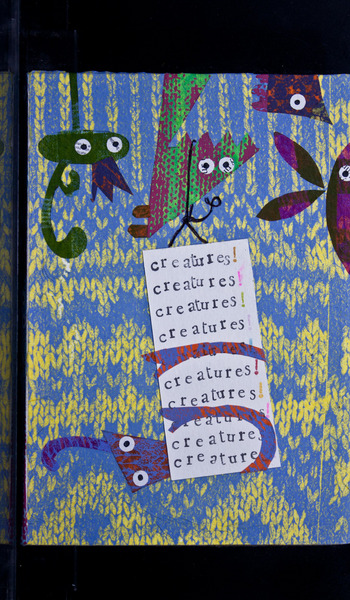 creatures!
creatures!
creatures!
creatures
creatures!
creatures!
creatures!
creatures
creatures
creature